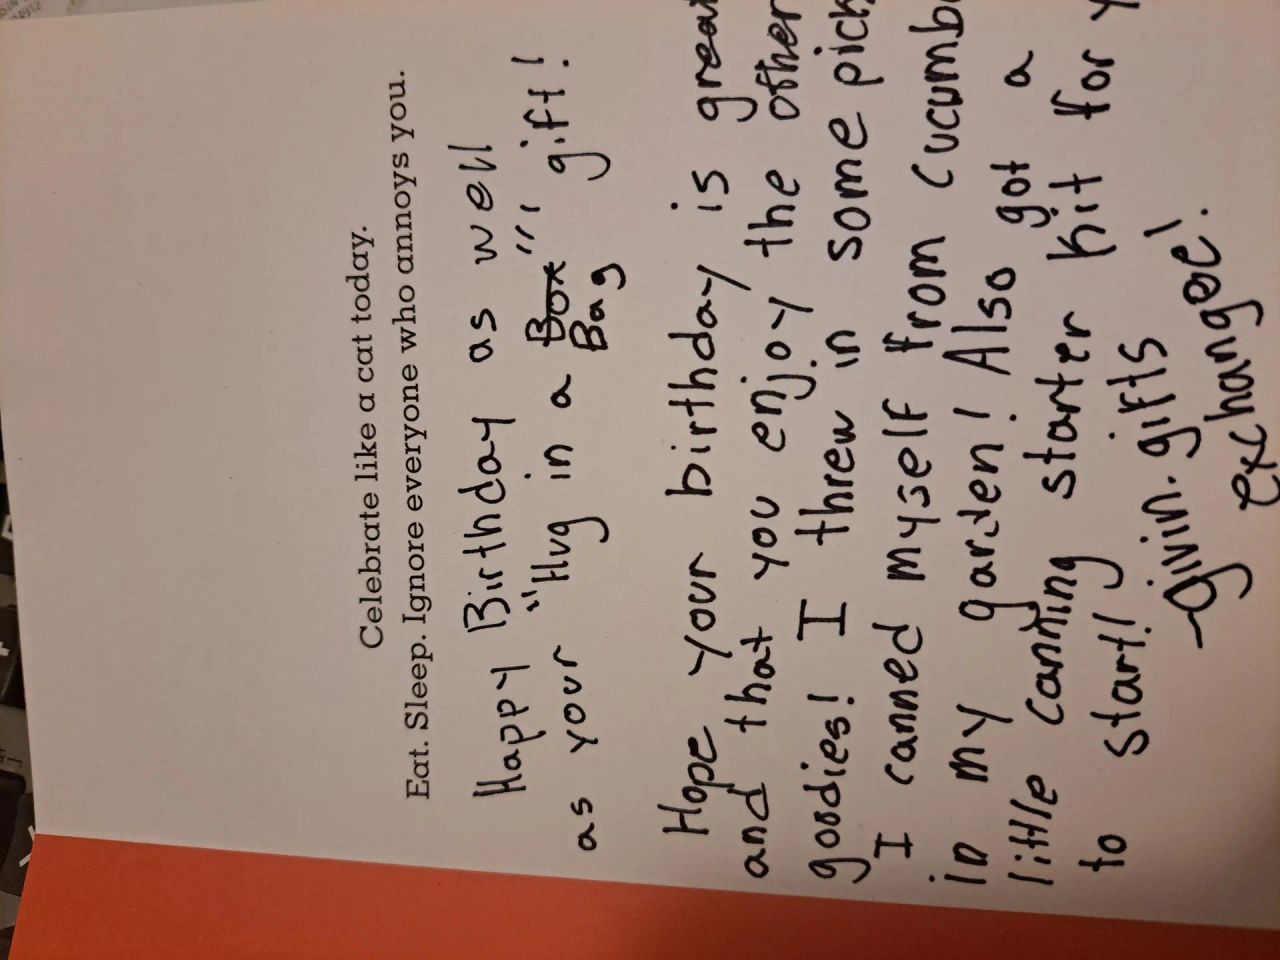 Celebrate like a cat today.
Eat. Sleep. Ignore everyone who annoys you.
Happy Birthday as well
as your "Hug in a Box", gift!
Bag
Hope your birthday is great
and that you enjoy the other
goodies! I threw in some pick
I canned myself from cucumb
in my garden! Also got a
little canning starter kit for y
to start!
gifts
exchangee!